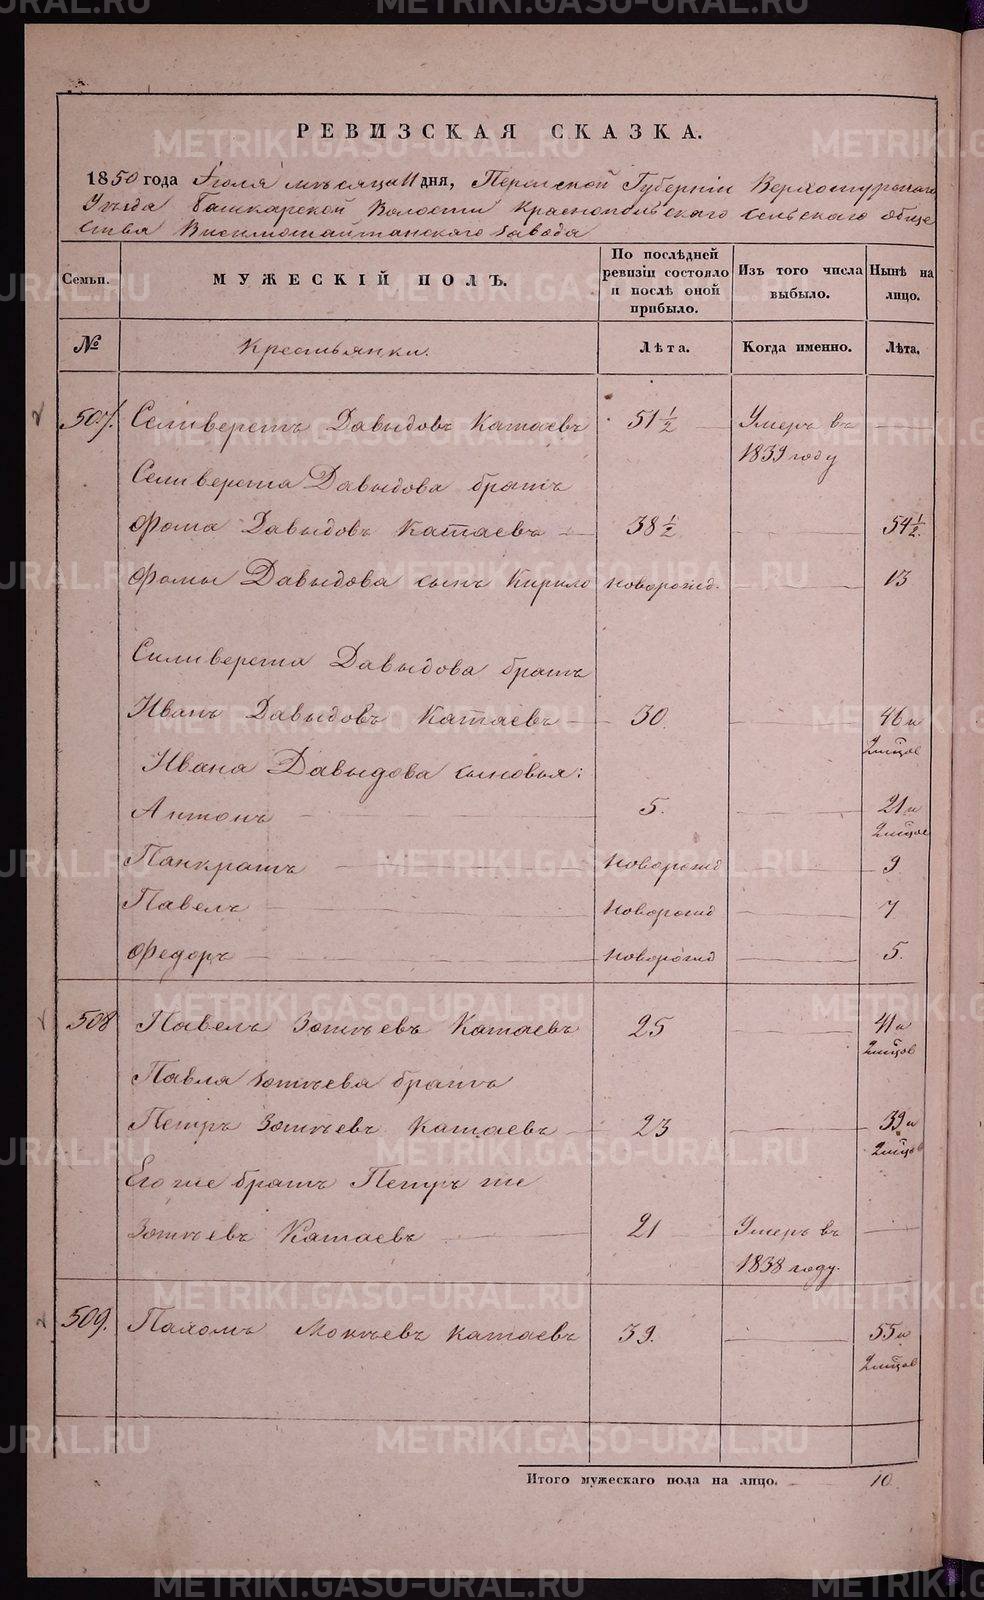 РЕВИЗСКАЯ СКАЗКА.
1850 года Іюля мѣсяца 11 дня, Пермской Губерніи Верхотурскаго
Уѣзда Башкарской Волости Краснопольскаго сельскаго обще
ства Висимошайтанскаго Завода
Семьи. МУЖЕСКІЙ ПОЛЪ. По послѣдней ревизіи состояло и послѣ оной прибыло. Изъ того числа выбыло. Нынѣ на лицо.
№ Крестьянки. Лѣта. Когда именно. Лѣта.
2 507. Селиверстъ Давыдовъ Катаевъ 51 ½ Умеръ въ
1839 году
Селиверста Давыдова братъ
Фома Давыдовъ Катаевъ 38 ½ 54 ½.
Фомы Давыдова сынъ Кирило новорожд. 13
Силиверста Давыдова братъ
Иванъ Давыдовъ Катаевъ 30. 46 и
2 мѣсяц
Ивана Давыдова сыновья:
Антонъ 5. 21 и
2 мѣсяц
Панкратъ новорожд 9
Павелъ новорожд 7
Федоръ новорожд 5.
2 508 Павелъ Зотѣевъ Катаевъ 25 41 и
2 мѣсяц
Павла Зотѣева братъ
Петръ Зотѣевъ Катаевъ 23 39 и
2 мѣсяц
Его же братъ Петръ же
Зотѣевъ Катаевъ 21 Умеръ въ
1838 году.
2 509. Пахомъ Мокѣевъ Катаевъ 39. 55 и
2 мѣсяц
Итого мужескаго пола на лицо. 10
METRIKI.GASO-URAL.RU